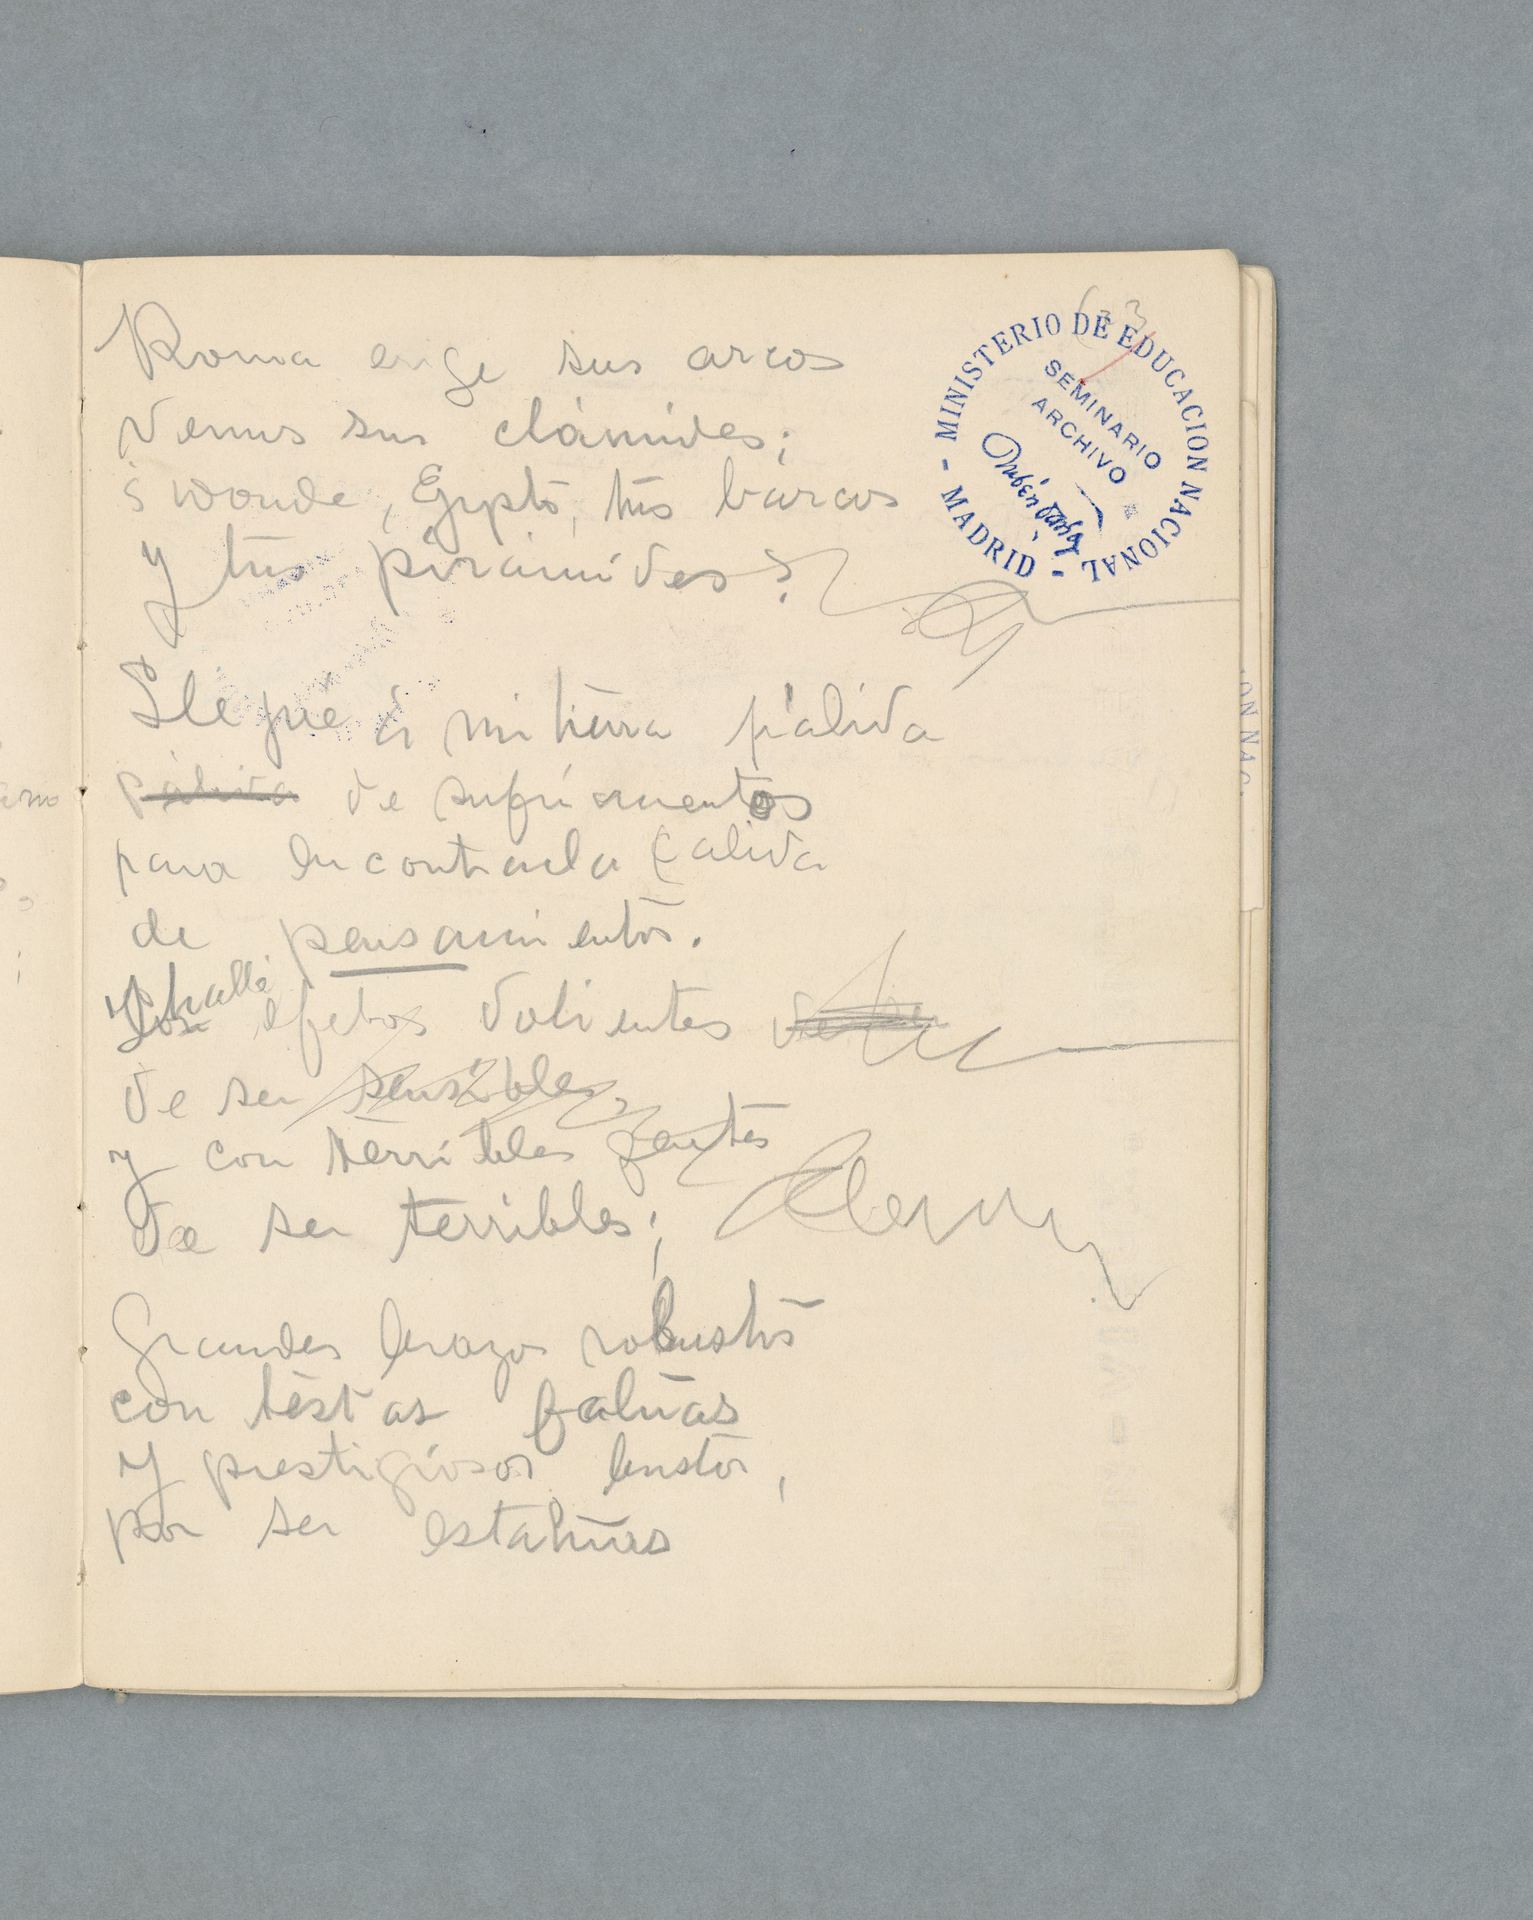 63
MINISTERIO DE EDUCACION NACIONAL - MADRID -
SEMINARIO
ARCHIVO
Rubén Darío
Roma erige sus arcos
Venus sus clámides;
¿donde, Egypto, tus barcos
y tus pirámides?
Llegué á mi tierra pálida
pálida de sufrimientos
para encontrarla cálida
de pensamientos.
Y hallé
Los efebos valientes
de ser sensibles,
y con terribles gentes
de ser terribles;
Grandes brazos robustos
con testas fatuas
y prestigiosos bustos,
por ser estatuas
ON NAC.